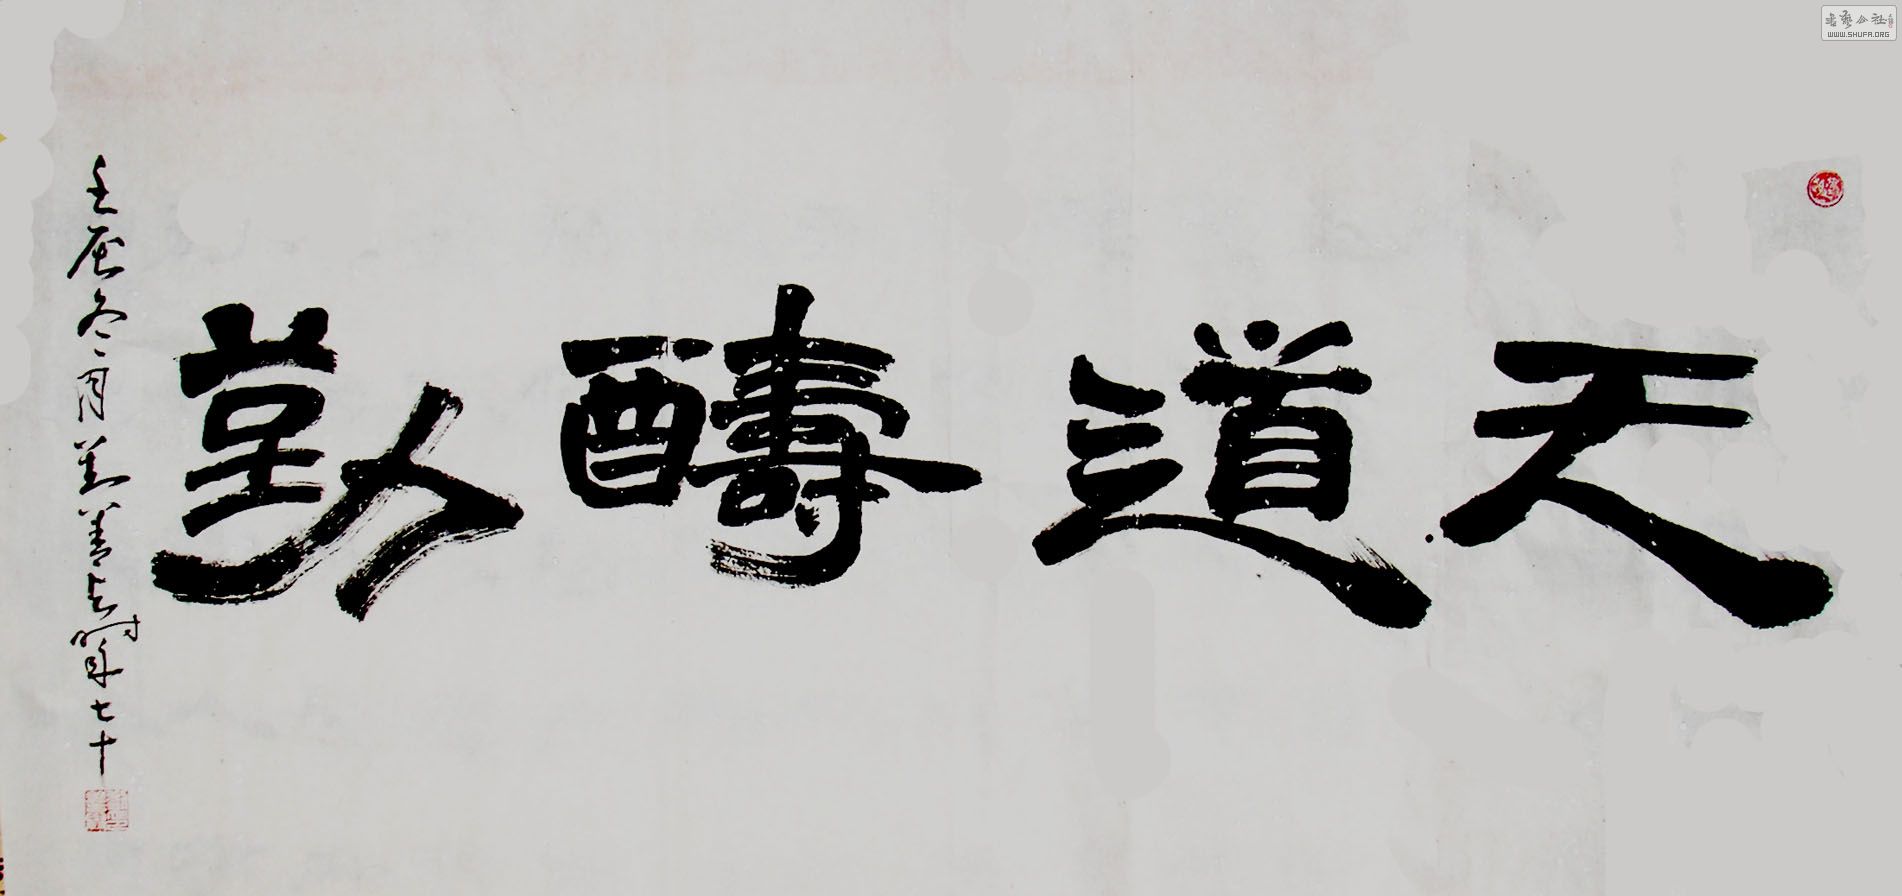 書藝公社
WWW.SHUFA.ORG
天道醻勤
壬辰冬月時年七十